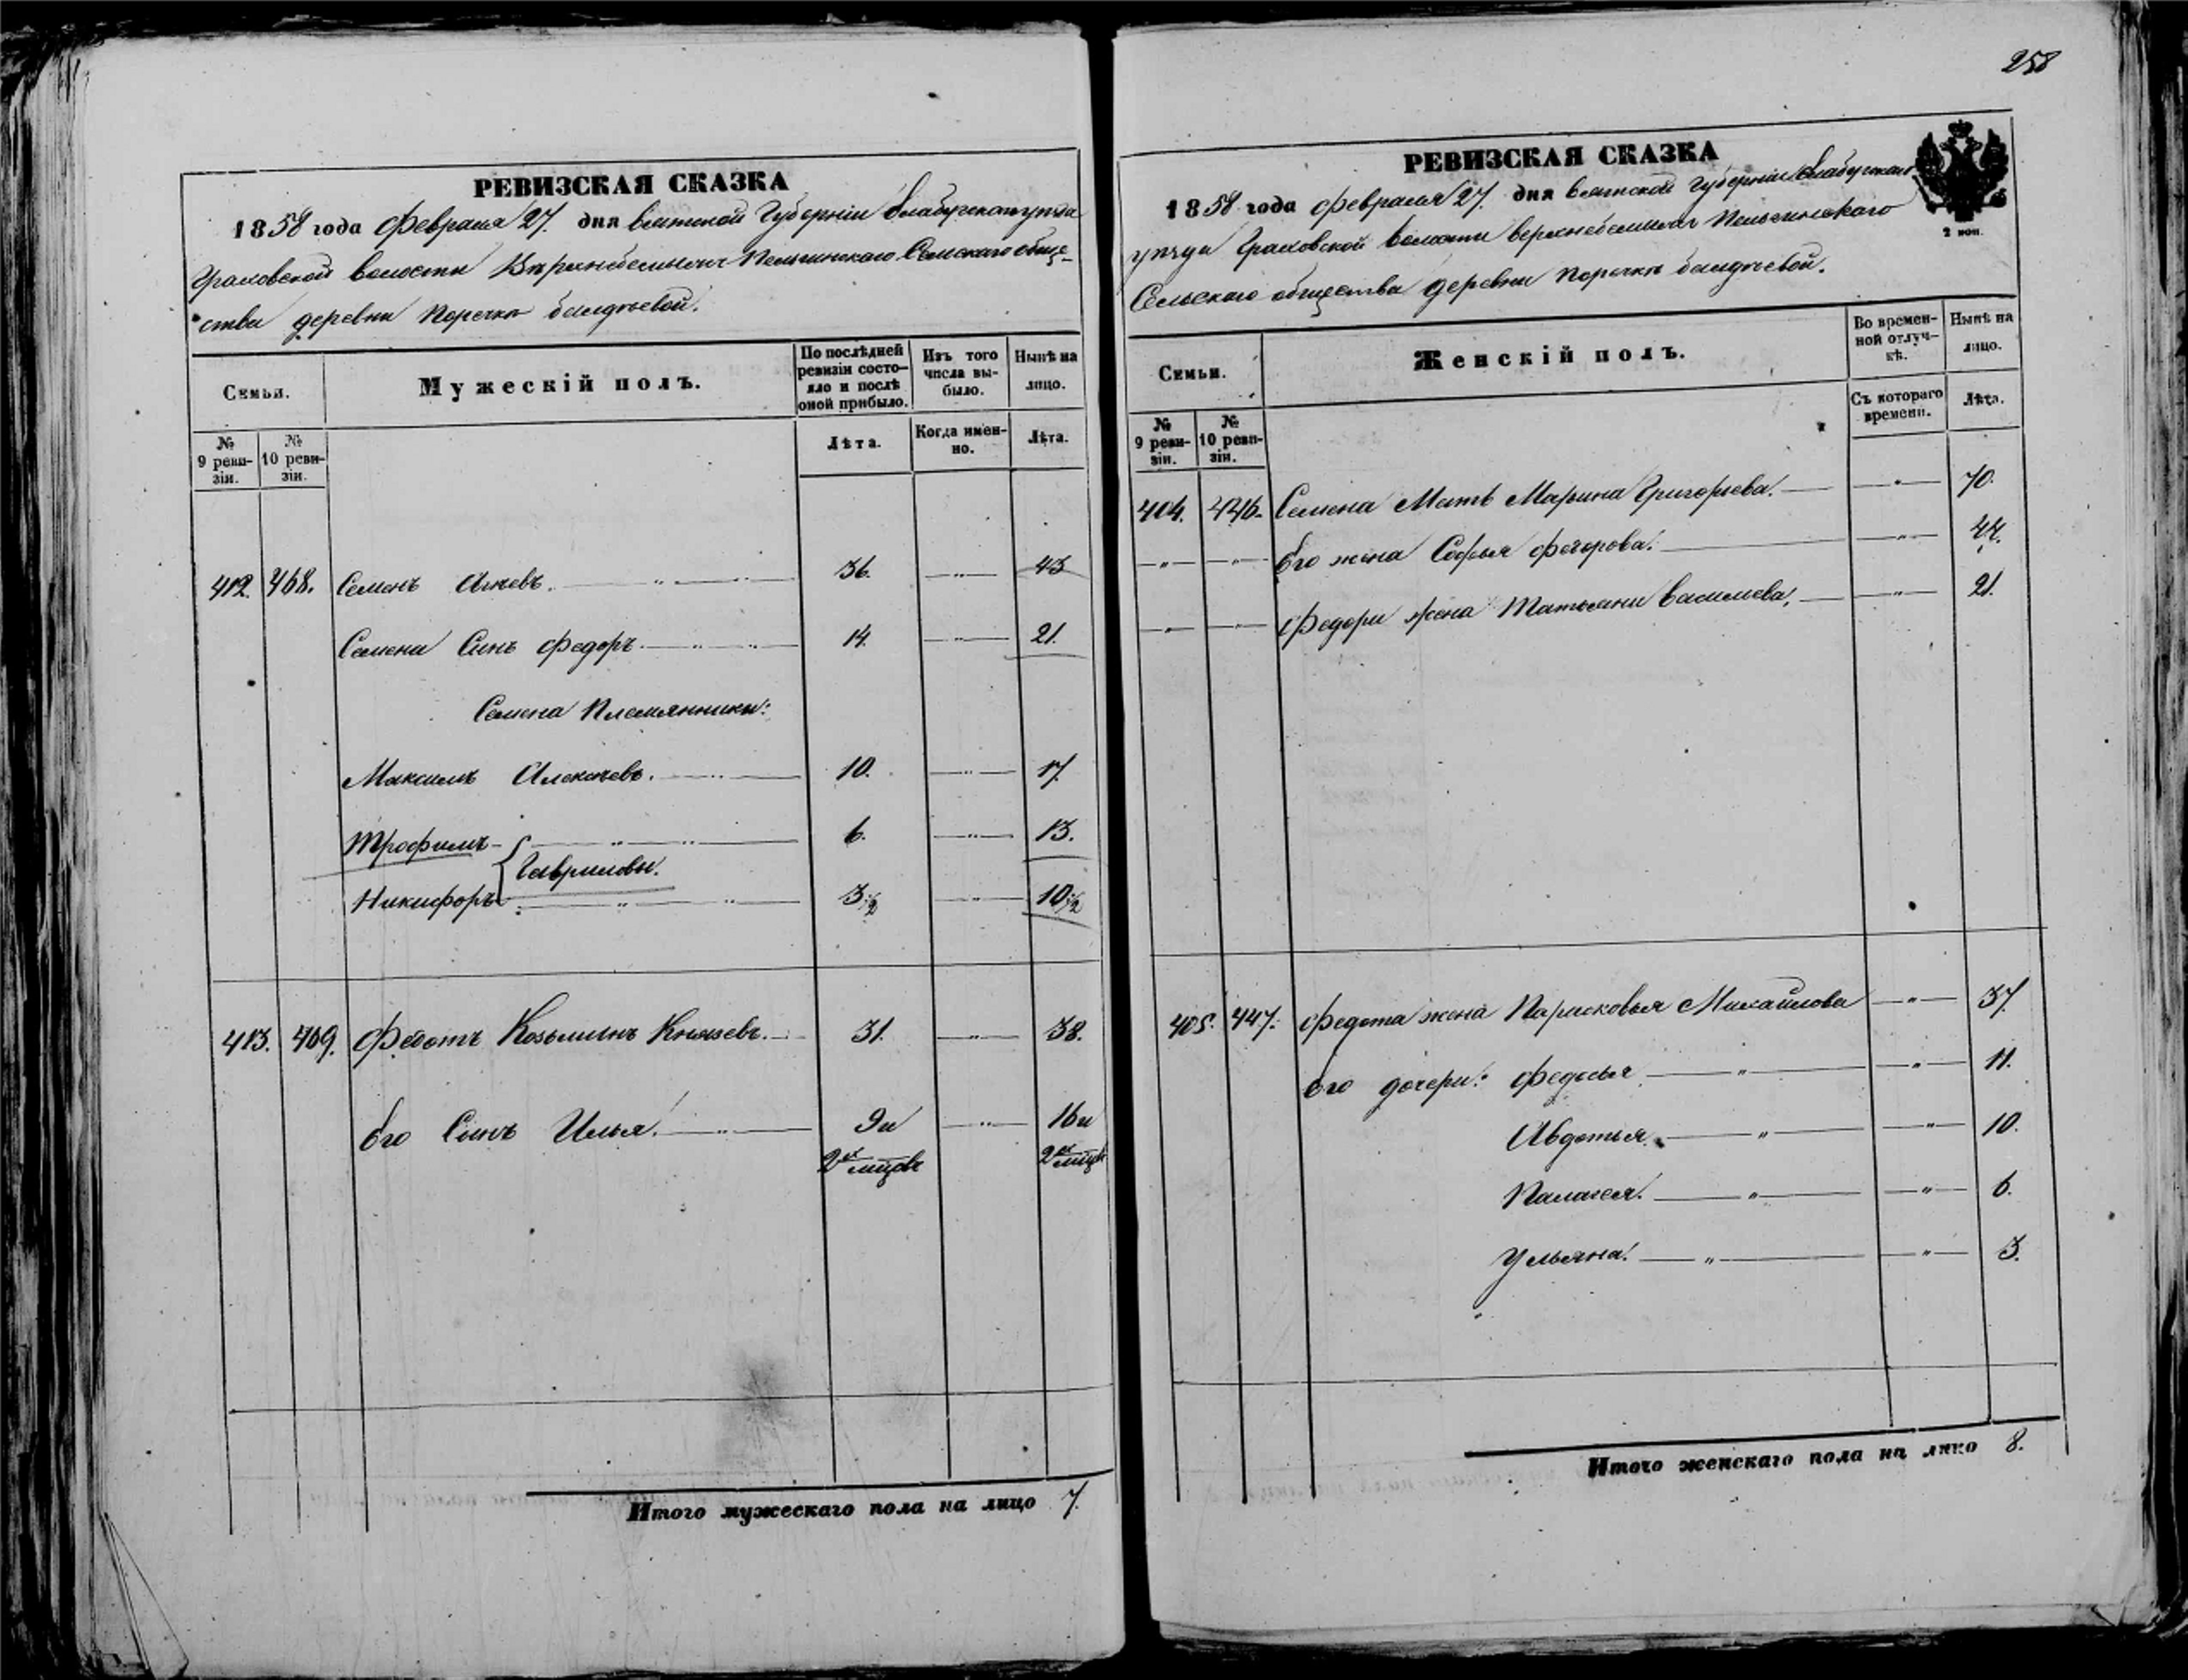 258
РЕВИЗСКАЯ СКАЗКА
1858 года Февраля 27. дня Вятской Губерніи Елабугскаго уѣзда
Граховской Волости Верхнебемыжъ Пельгинскаго Сельскаго обще-
ства деревни Поречкѣ
Семьи.
Мужескій полъ.
По послѣдней ревизіи состояло и послѣ оной прибыло.
Изъ того числа выбыло.
Нынѣ на лицо.
№ 9 ревизіи.
№ 10 ревизіи.
Лѣта.
Когда именно.
Лѣта.
412. 468. Семенъ 36. —"— 43
Семена Сынъ Федоръ 14. —"— 21.
Семена Племянники:
Максимъ Алексѣевъ. 10. —"— 17.
Трофимъ 6. —"— 13.
Гавриловы.
Никифоръ 3 1/2 —"— 10 1/2
413. 469. Федотъ Козьминъ Князевъ. 31. —"— 38.
Его Сынъ Илья. 9 и —"— 16 и
2хъ мѣсцовъ 2хъ мѣсцовъ
Итого мужескаго пола на лицо 7.
РЕВИЗСКАЯ СКАЗКА
2 коп.
1858 года Февраля 27. дня Вятской Губерніи Елабугскаго
уѣзда Граховской Волости Верхнебемыжъ Пельгинскаго
Сельскаго общества деревни Поречкѣ
Семьи.
Женскій полъ.
Во временной отлучкѣ.
Нынѣ на лицо.
№ 9 ревизіи.
№ 10 ревизіи.
Съ котораго времени.
Лѣта.
404. 446. Семена Мать Марина Григорьева. —"— 70.
—"— —"— Его жена Софья Федорова. —"— 44.
—"— —"— Федора жена Татьяна Васильева. —"— 21.
405. 447. Федота жена Парасковья Михайлова —"— 37.
Его дочери: Федосья —"— 11.
Авдотья. —"— 10.
Палагея. —"— 6.
Ульяна. —"— 3.
Итого женскаго пола на лицо 8.